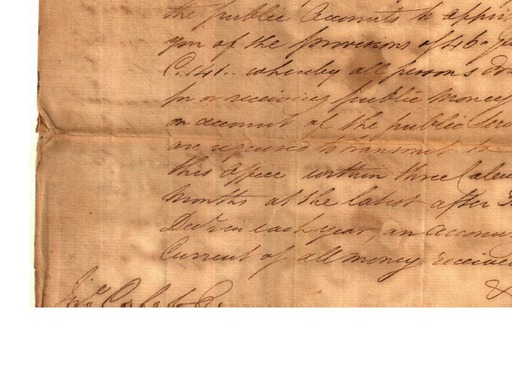 the public Accounts to
you of the provisions of 46
C. 141. whereby all persons
for or receiving public money
on account of the public
are required to transmit to
this Office within three
months at the latest after
Decr in each year, an
Current of all money